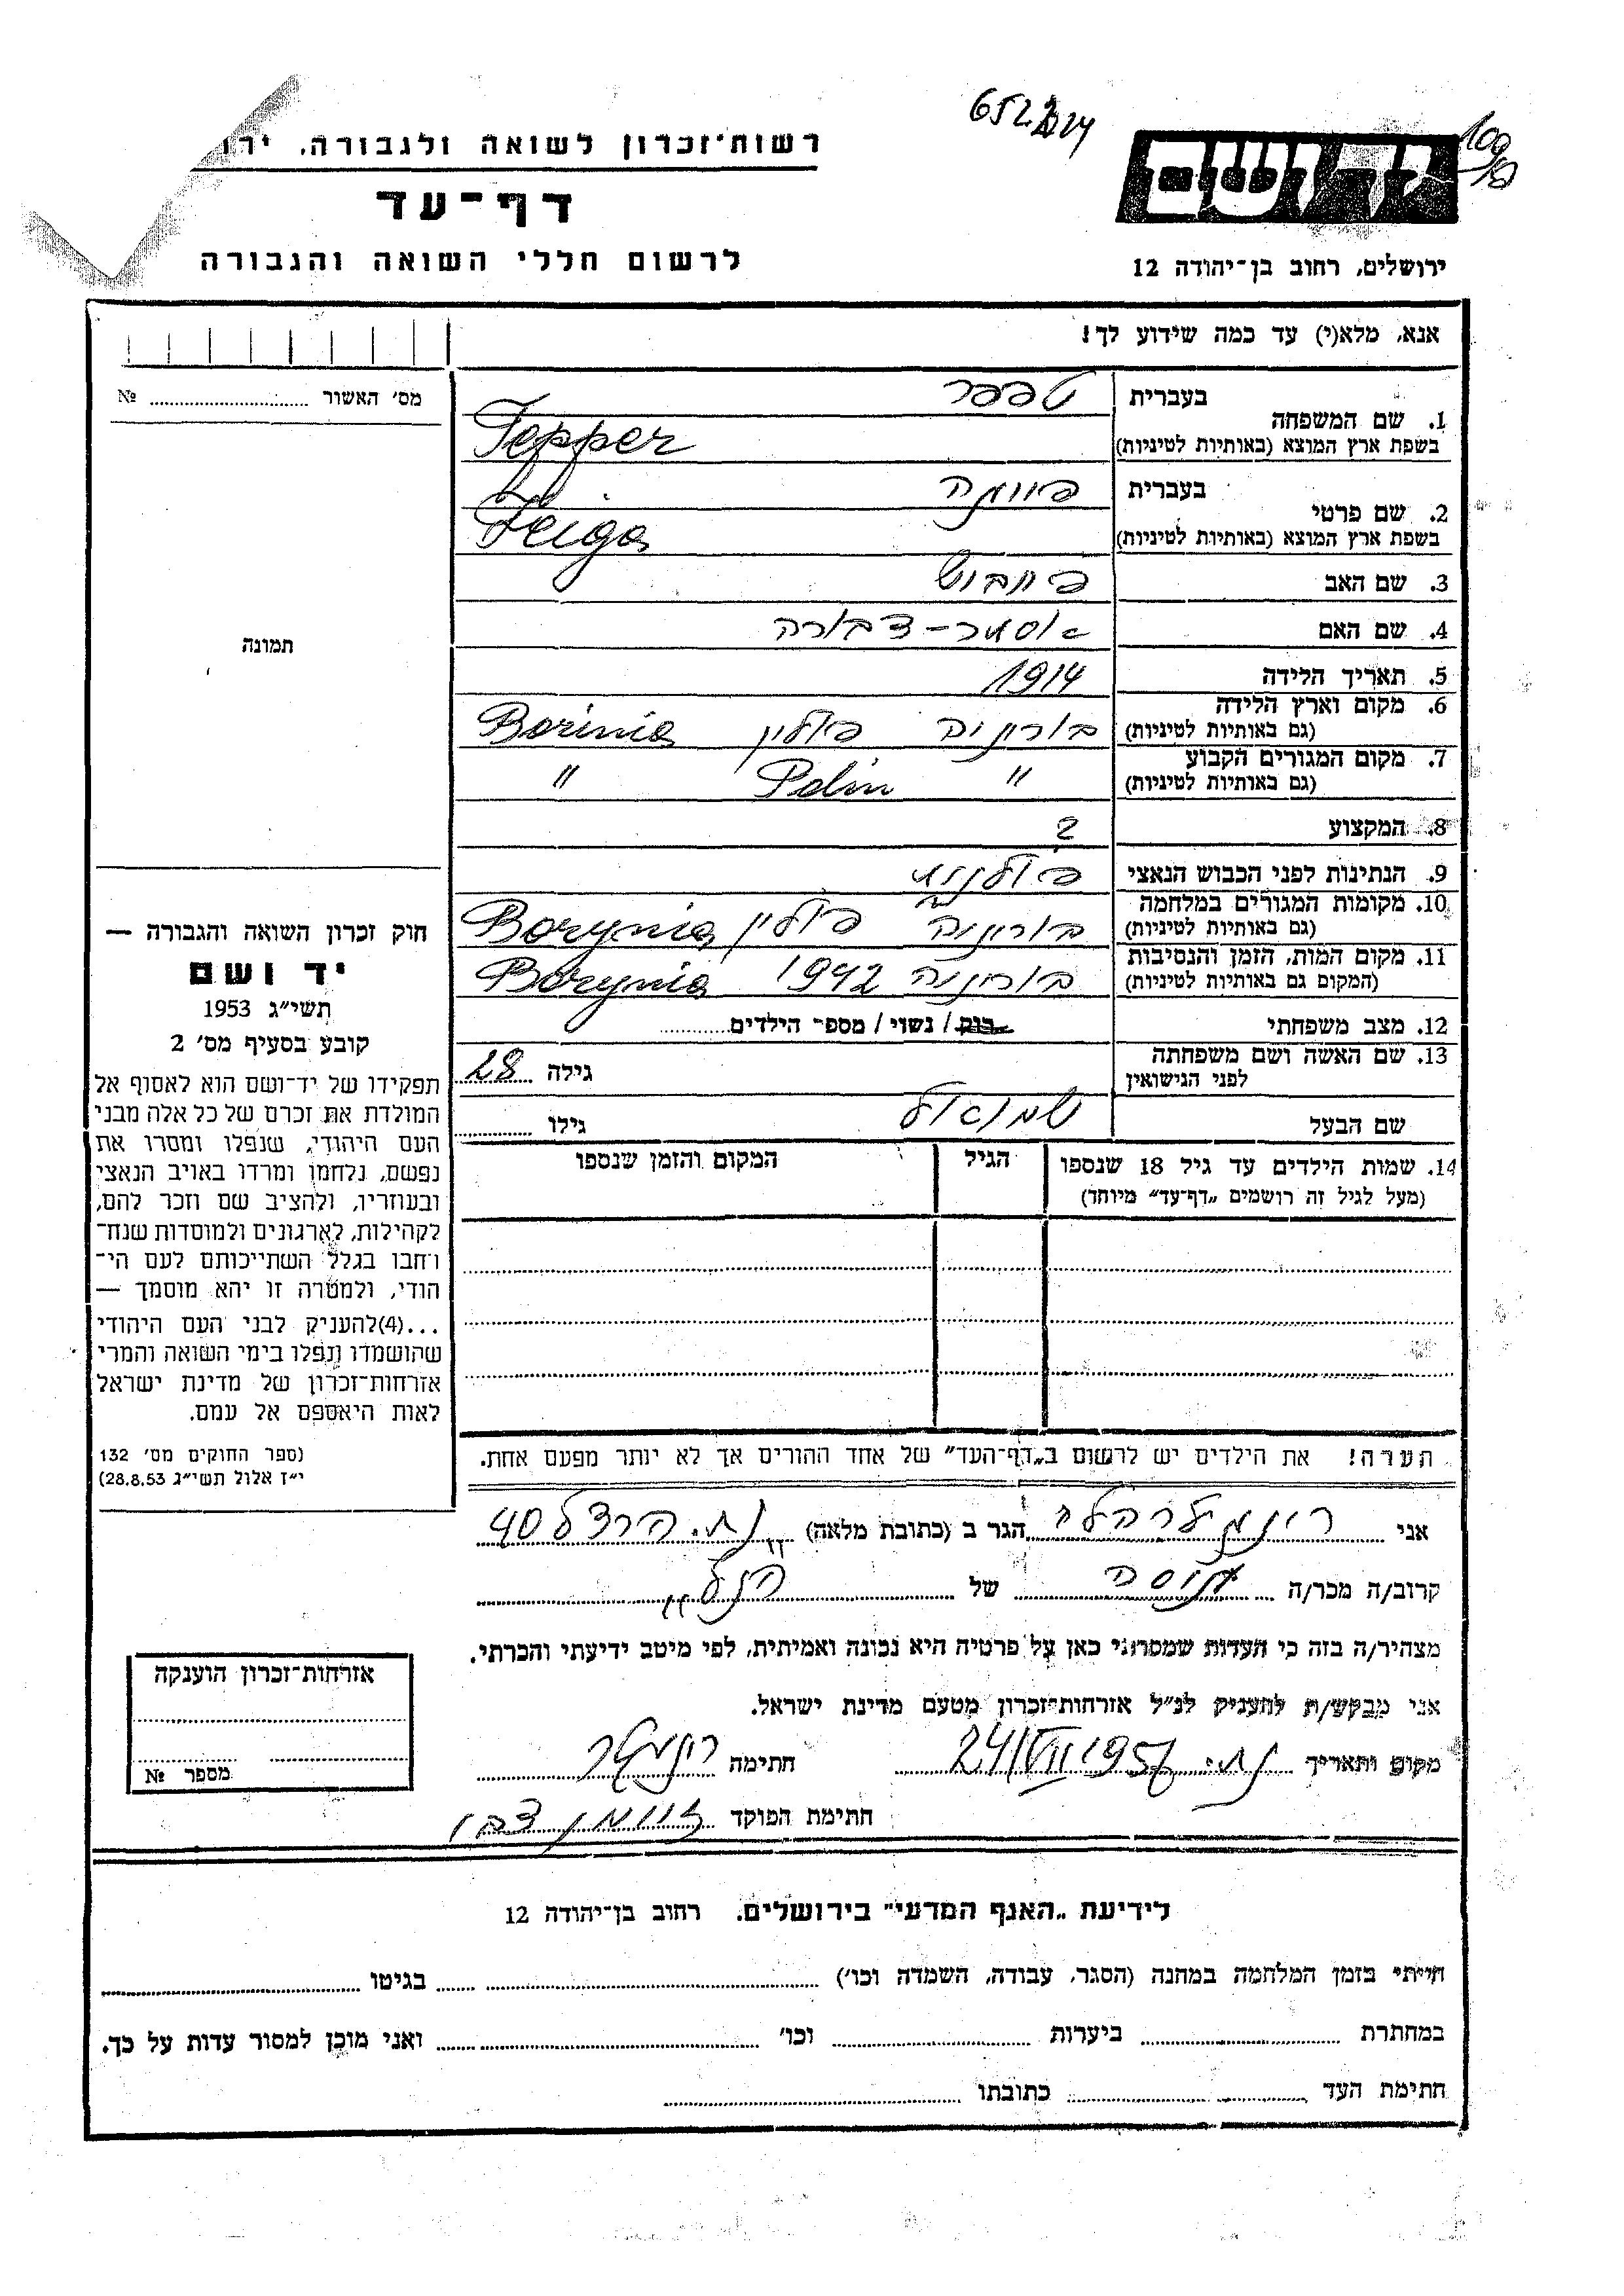 רשות־זכרון לשואה ולגבורה, ירו
דף־עד
לרשום חללי השואה והגבורה
יד ושם
ירושלים, רחוב בן־יהודה 12
אנא, מלא(י) עד כמה שידוע לך!
מס׳ האשור № 
1. שם המשפחה
בעברית טפפר
בשפת ארץ המוצא (באותיות לטיניות) Tepper
2. שם פרטי
בעברית
בשפת ארץ המוצא (באותיות לטיניות) Feiga
3. שם האב פייבוש
4. שם האם אסתר-דבורה
5. תאריך הלידה 1914
6. מקום וארץ הלידה
(גם באותיות לטיניות) בוריניה פולין Borinia
7. מקום המגורים הקבוע
(גם באותיות לטיניות) " Polin "
8. המקצוע ?
9. הנתינות לפני הכבוש הנאצי פולנית
10. מקומות המגורים במלחמה
(גם באותיות לטיניות) בוריניה פולין Borynia
11. מקום המות, הזמן והנסיבות
(המקום גם באותיות לטיניות) בוריניה 1942 Borynia
12. מצב משפחתי רווק / נשוי / מספר הילדים
13. שם האשה ושם משפחתה
לפני הנישואין גילה 28
שם הבעל שמואל גילו
14. שמות הילדים עד גיל 18 שנספו הגיל המקום והזמן שנספו
(מעל לגיל זה רושמים „דף־עד" מיוחד)
הערה! את הילדים יש לרשום ב„דף־העד" של אחד ההורים אך לא יותר מפעם אחת.
תמונה
חוק זכרון השואה והגבורה —
יד ושם
תשי״ג 1953
קובע בסעיף מס׳ 2
תפקידו של יד־ושם הוא לאסוף אל
המולדת את זכרם של כל אלה מבני
העם היהודי, שנפלו ומסרו את
נפשם, נלחמו ומרדו באויב הנאצי
ובעוזריו, ולהציב שם וזכר להם,
לקהילות, לארגונים ולמוסדות שנח־
רבו בגלל השתייכותם לעם הי־
הודי, ולמטרה זו יהא מוסמך —
...(4)להעניק לבני העם היהודי
שהושמדו ונפלו בימי השואה והמרי
אזרחות־זכרון של מדינת ישראל
לאות היאספם אל עמם.
(ספר החוקים מס׳ 132
י״ז אלול תשי״ג 28.8.53)
אני הגר ב (כתובת מלאה) נת. הרצל 40
קרוב/ה מכר/ה גיסה של הנ"ל
מצהיר/ה בזה כי העדות שמסרתי כאן על פרטיה היא נכונה ואמיתית, לפי מיטב ידיעתי והכרתי.
אני מבקש/ת להעניק לנ״ל אזרחות־זכרון מטעם מדינת ישראל.
מקום ותאריך נת. 24/VII 1956 חתימה
חתימת הפוקד
אזרחות־זכרון הוענקה
מספר №
לידיעת „האגף המדעי" בירושלים, רחוב בן־יהודה 12
הייתי בזמן המלחמה במחנה (הסגר, עבודה, השמדה וכו׳) בגיטו
במחתרת ביערות וכו׳ ואני מוכן למסור עדות על כך.
חתימת העד כתובתו